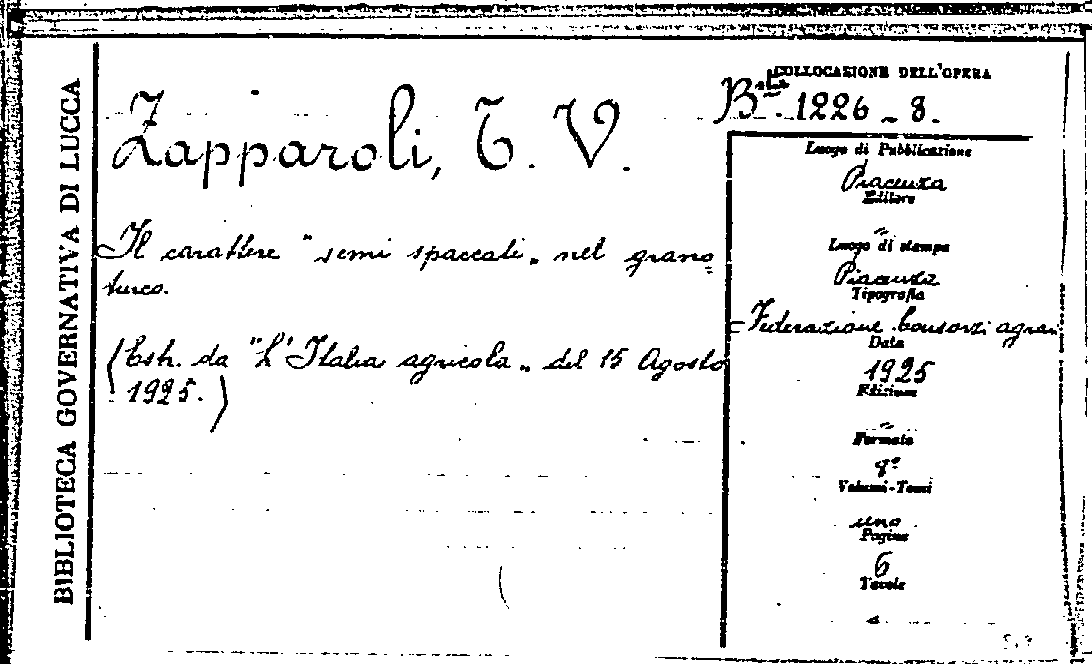 BIBLIOTECA GOVERNATIVA DI LUCCA
Zapparoli, T. V.
Il carattere "semi spaccati„ nel grano=
turco.
(Estr. da "L'Italia agricola„ del 15 Agosto
1925.)
COLLOCAZIONE DELL'OPERA
Bta. 1226 - 8.
Luogo di Pubblicazione
Piacenza
Editore
"
Luogo di stampa
Piacenza
Tipografia
Federazione Consorzi agrari
Data
1925
Edizione
"
Formato
8°
Volumi-Tomi
uno
Pagine
6
Tavole